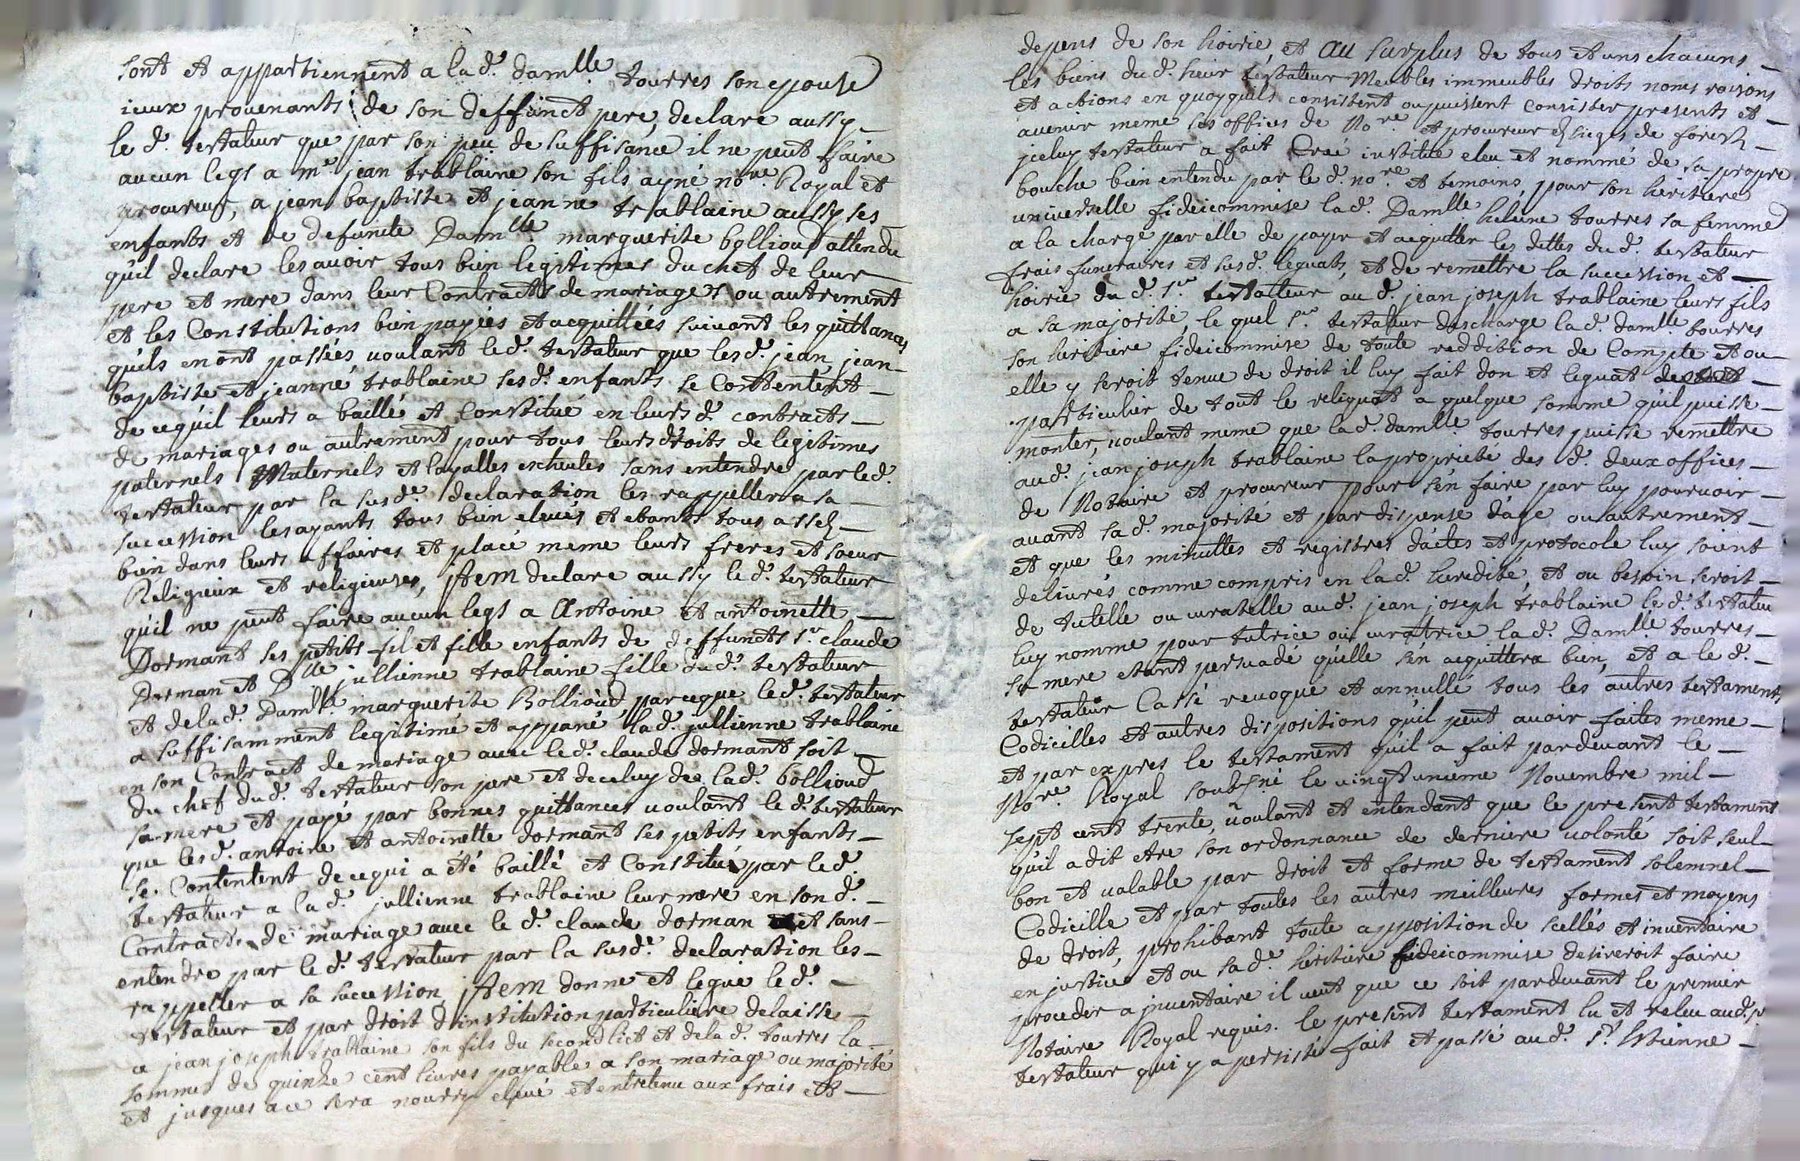 sont et appartiennent a la d.e damlle tourres son epouse
iceux provenants de son deffunct pere, declare aussy
le d. testateur que par son peu de suffisance il ne peut faire
aucun legs a me jean trablaine son fils ayné nore Royal et
procureur, a jean baptiste et jeanne trablaine aussy ses
enfants et de defuncte Damlle marguerite bollioud attendu
qu'il declare les avoir tous bien legitimes du chef de leur
pere et mere dans leur Contracts de mariages ou autrement
et les Constitutions bien payées et acquittées suivant les quittances
qu'ils en ont passées voulant le d. testateur que les d. jean, jean
baptiste et jeanne trablaine ses d. enfants se Contentent
de ce qu'il leurs a baillé et Constitué en leurs d. contracts
de mariages ou autrement pour tous leurs droits de legitimes
paternels Maternels et layalles escheutes sans entendre par le d.
testateur par la susd.e declaration les rappeller a sa
succession les ayants tous bien eleués et
bien dans leurs affaires et placé meme leurs freres et soeur
Religieux et religieuses, jtem declare aussy le d. testateur
qu'il ne peut faire aucun legs a Antoine et antoinette
Dormant ses petits fil et fille enfants de deffuncts sr claude
Dorman et Dlle jullienne trablaine fille dud. testateur
et de la d. Damlle marguerite Bollioud parceque le d. testateur
a suffisamment legitimé et appané la d. jullienne trablaine
en son Contract de mariage avec le d. claude dormant soit
du chef dud. testateur son pere et de celuy de la d. bollioud
sa mere et payé par bonnes quittances voulant le d. testateur
que les d. antoine et antoinette dormant ses petits enfants
se Contentent de ce qui a été baillé et Constitué par le d.
testateur a la d. jullienne trablaine leur mere en son d.
Contract de mariage avec le d. claude dorman et sans
entendre par le d. testateur par la susd.e declaration les
rappeller a sa succession, jtem donne et legue le d.
testateur et par droit d'institution particuliere delaisse
a jean joseph trablaine son fils du second lict et de la d. tourres la
somme de quinze cent livres payable a son mariage ou majorité
et jusques a ce sera nourry elevé et entretenu aux frais et
depens de son hoirie, et au surplus de tous et uns chacuns
les biens du d. sieur testateur Meubles immeubles droits noms raisons
et actions en quoy qu'ils consistent ou puissent consister presents et
avenir meme ses offices de Nore et procureur sieges de forests
jceluy testateur a fait Creé institué eleu et nommé de sa propre
bouche bien entendu par le d. nore et temoins, pour son heritiere
universelle fideicommise la d. Damlle heleine tourres sa femme
a la charge par elle de payer et acquitter les dettes du d. testateur
frais funeraires et susd. leguats, et de remettre la succession et
hoirie du d. sr testateur au d. jean joseph trablaine leurs fils
a sa majorité, le quel sr testateur descharge la d. damlle tourres
son heritiere fideicommise de toute reddition de Compte et ou
elle y seroit tenue de droit il luy fait don et leguat
particulier de tout le reliquat a quelque somme qu'il puisse
monter, voulant meme que la d. damlle tourres puisse remettre
aud. jean joseph trablaine la proprieté des d. deux offices
de Notaire et procureur pour s'en faire par luy pourvoir
avant sa d. majorité et par dispense d'age ou autrement
et que les minuttes et registres d'actes et protocole luy soient
delivrés comme compris en la d. heredité, et ou besoin seroit
de tutelle ou curatelle aud. jean joseph trablaine le d. testateur
luy nomme pour tutrice ou curatrice la d. Damlle tourres
sa mere etant persuadé qu'elle s'en acquittera bien, et a le d.
testateur Cassé revoqué et annullé tous les autres testaments
Codicilles et autres dispositions qu'il peut avoir faites meme
et par expres le testament qu'il a fait pardevant le
Nore Royal soubsné le vingt unieme Novembre mil
sept cent trente, voulant et entendant que le present testament
qu'il a dit etre son ordonnance de derniere volonté soit seul
bon et valable par droit et forme de testament solemnel
Codicille et par toutes les autres meilleures formes et moyens
de droit, prohibant toute apposition de scellés et inventaire
en justice et ou sa d.e heritiere fideicommise desireroit faire
proceder a jnventaire il veut que ce soit pardevant le premier
Notaire Royal requis. le present testament lu et releu aud. sr
testateur qui y a persisté fait et passé aud. st. Etienne